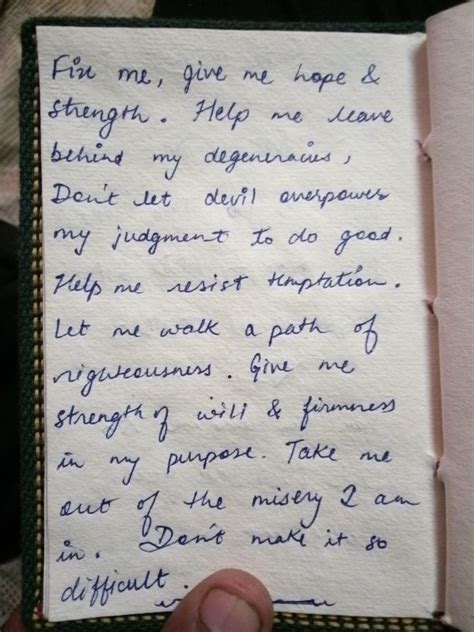 Fix me, give me hope &
strength. Help me leave
behind my degeneracies,
Don't let devil overpower
my judgment to do good.
Help me resist temptation.
Let me walk a path of
righteousness. Give me
strength of will & firmness
in my purpose. Take me
out of the misery I am
in. Don't make it so
difficult.